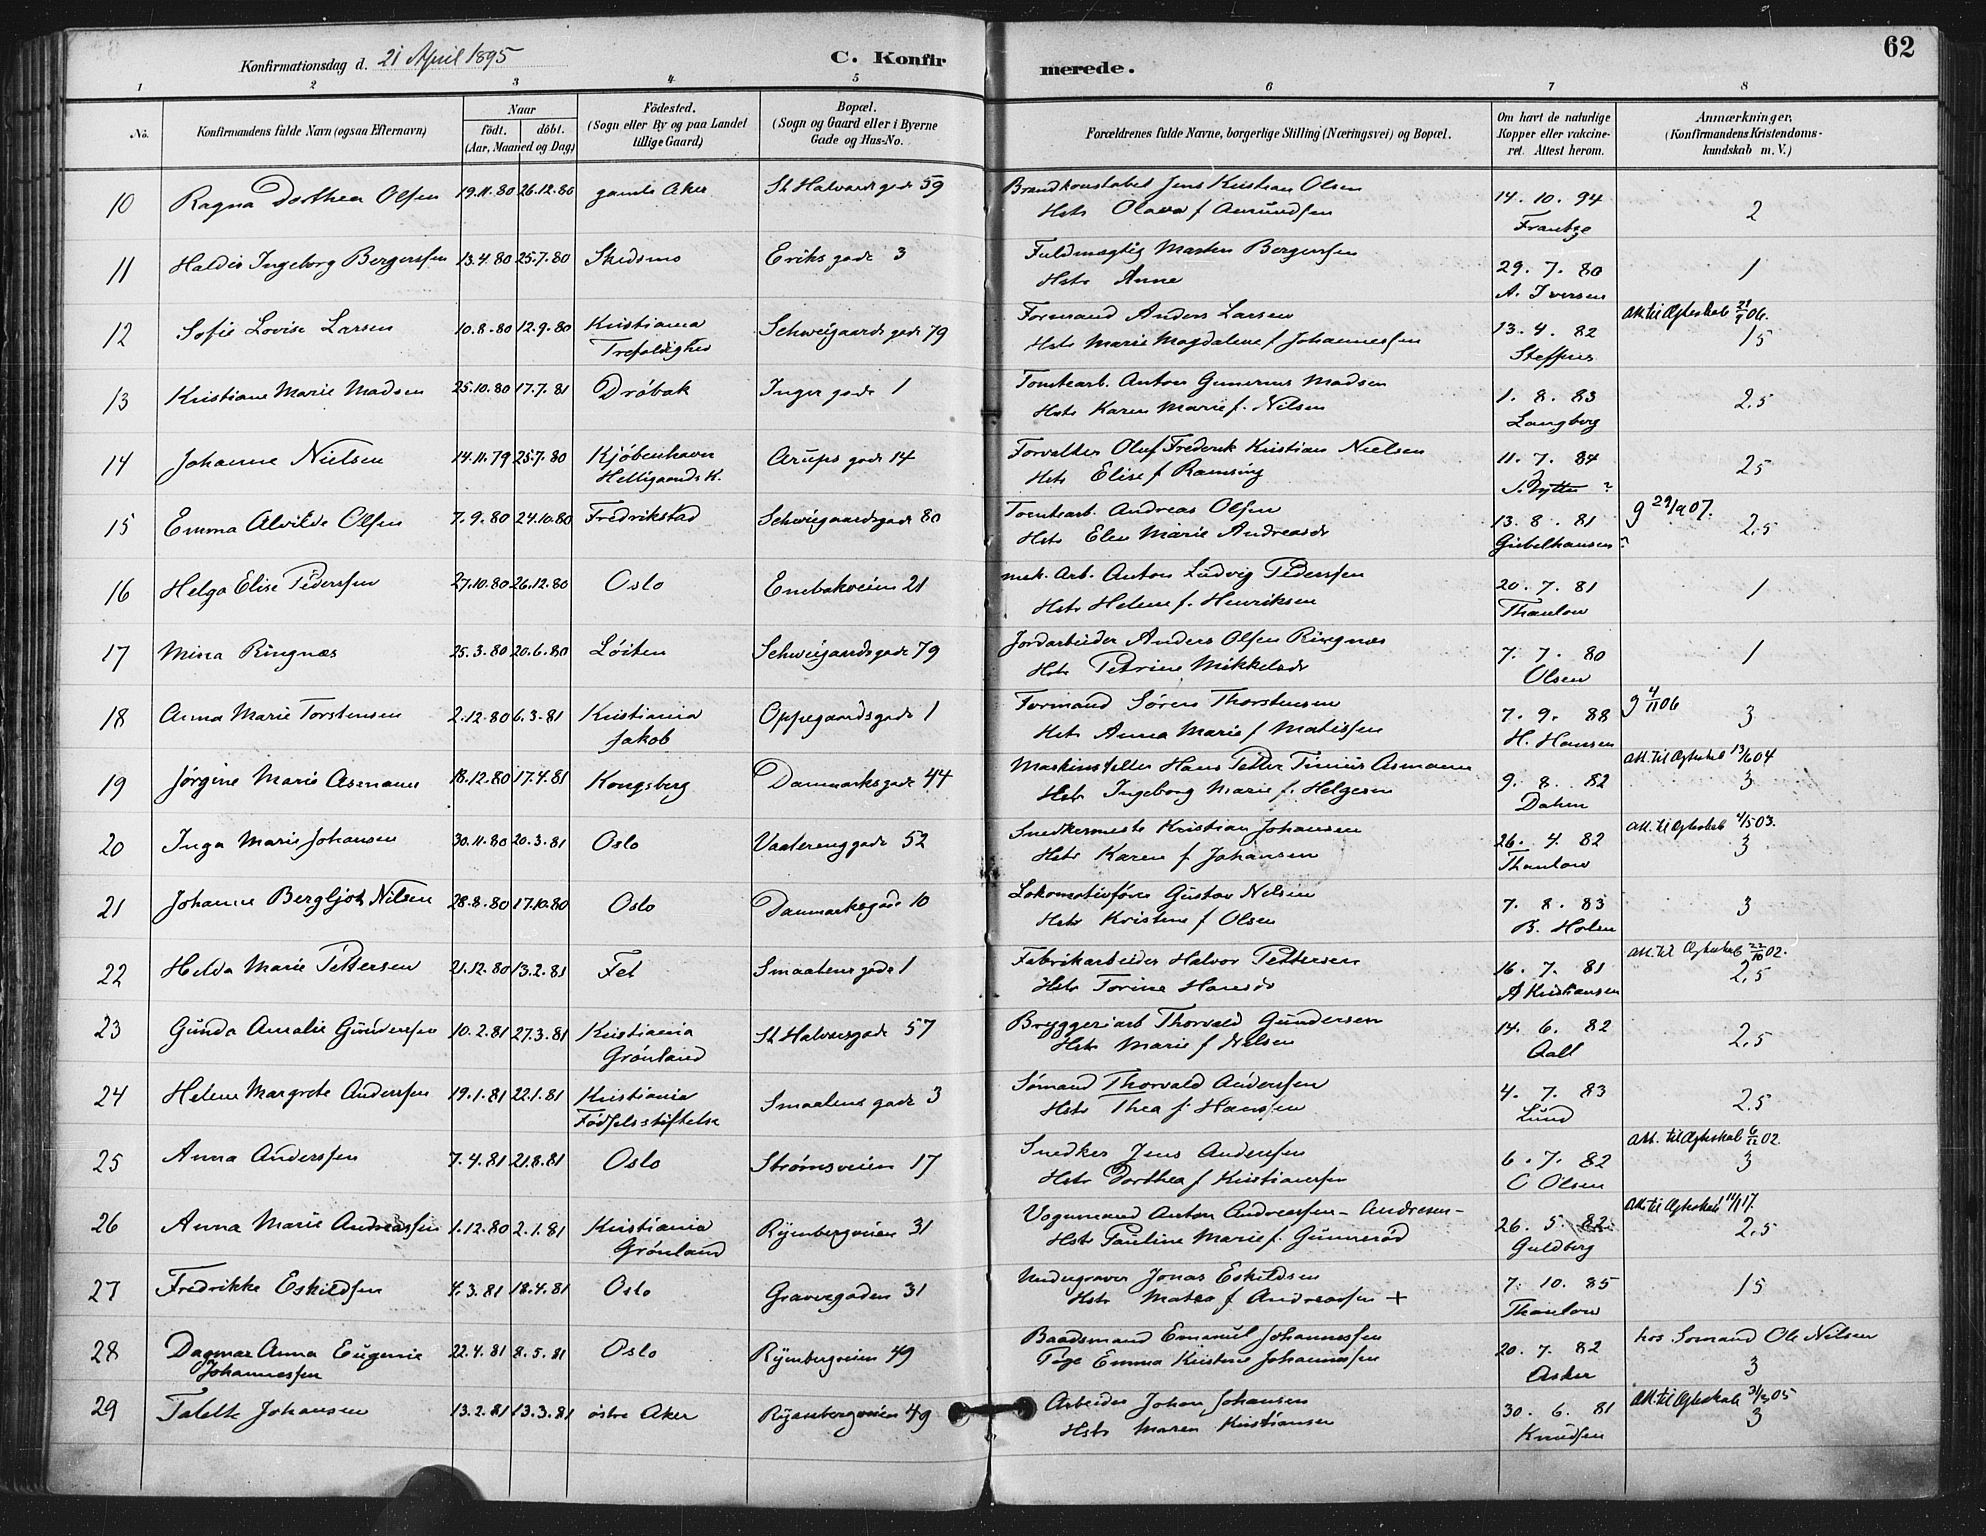 62
Konfirmationsdag d. 21 April 1895 C. Konfirmerede.
1 2 3 4 5 6 7 8
No. Konfirmandens fulde Navn (ogsaa Efternavn) Naar født. døbt. (Aar, Maaned og Dag) Fødested. (Sogn eller By og paa Landet tillige Gaard) Bopæl. (Sogn og Gaard eller i Byerne Gade og Hus-No. Forældrenes fulde Navne, borgerlige Stilling (Næringsvei) og Bopæl. Om havt de naturlige Kopper eller vakcineret. Attest herom. Anmærkninger, (Konfirmandens Kristendomskundskab m. V.)
10 Ragna Dorthea Olsen 19.11.80 26.12.80 gamle Aker St Halvards gade 59 Brandkonstabel Jens Kristian Olsen 14. 10. 94 2
Hstr Olava f Amundsen Frantze
11 Haldis Ingeborg Bergersen 13.4.80 25.7.80 Skedsmo Eriks gade 3 Fuldmægtig Morten Bergersen 29. 7. 80 1
Hstr Anne A. Iversen
12 Sofie Lovise Larsen 10.8.80 12.9.80 Kristiania Schweigaards gade 79 Formand Anders Larsen 13. 4. 82 att til Ægteskab 21/9 06.
Trefoldighed Hstr Marie Magdalene f Johannessen Steffens 1,5
13 Kristiane Marie Madsen 25.10.80 17.7.81 Drøbak Inger gade 1 Tomtearb. Anton Gunerius Madsen 1. 8. 83 2.5
Hstr Karen Marie f. Nilsen Langberg
14 Johanne Nielsen 14.11.79 25.7.80 Kjøbenhavn Arups gade 14 Forvalter Oluf Frederik Kristian Nielsen 11. 7. 84 2,5
Helligaands K. Hstr Elise f Ramsing J. Rytter ?
15 Emma Alvilde Olsen 7.9.80 24.10.80 Fredrikstad Schweigaardsgade 80 Tomtearb. Andreas Olsen 13. 8. 81 g 29/9 07.
Hstr Elen Marie Andreasdr Giebelhausen ? 2.5
16 Helga Elise Pederssen 27.10.80 26.12.80 Oslo Enebakveien 21 mek. Arb. Anton Ludvig Pederssen 20. 7. 81 1
Hstr Helene f. Henriksen Thaulow
17 Mina Ringnæs 25.3.80 20.6.80 Løiten Schweigaardsgade 79 Jordarbeider Anders Olsen Ringnæs 7. 7. 80 1
Hstr Petrine Mikkelsdr Olsen
18 Anna Marie Torstensen 2.12.80 6.3.81 Kristiania Oppegaardsgade 1 Formand Søren Thorstensen 7. 9. 88 g 4/11 06
Jakob Hstr Anna Marie f Matissen H. Hansen 3
19 Jørgine Marie Asmann 18.12.80 17.4.81 Kongsberg Danmarksgade 44 Maskinsteller Hans Petter Tinius Asmann 9. 8. 82 att. til Ægteskab 13/6 04
Hstr Ingeborg Marie f. Helgesen Dahm 3
20 Inga Marie Johansen 30.11.80 20.3.81 Oslo Vaalerenggade 52 Snedkermester Kristian Johansen 26. 4. 82 att. til Ægteskab 4/5 03.
Hstr Karen f Johansen Thaulow 3
21 Johanne Bergljot Nilsen 28.8.80 17.10.80 Oslo Danmarksgade 10 Lokomotivfører Gustav Nelsen 7. 8. 83 3
Hstr Kristine f Olsen B. Holm
22 Helda Marie Pettersen 21.12.80 13.2.81 Fet Smaalens gade 1 Fabrikarbeider Halvor Pettersen 16. 7. 81 att. til Ægteskab 22/10 02.
Hstr Torine Hansdr A Kristiansen 2,5
23 Gunda Amalie Gundersen 10.2.81 27.3.81 Kristiania St Halvorsgade 57 Bryggeriarb Thorvald Gundersen 14. 6. 82 2,5
Grønland Hstr Marie f Nelsen Aall
24 Helene Margrete Anderssen 19.1.81 22.1.81 Kristiania Smaalens gade 3 Sømand Thorvald Anderssen 4. 7. 83 2.5
Fødselsstiftelse Hstr Thea f. Hanssen Lund
25 Anna Anderssen 7.4.81 21.8.81 Oslo Strømsveien 17 Snedker Jens Anderssen 6. 7. 82 att. til Ægteskab 6/12 02.
Hstr Dorthea f Kristianssen C Olsen 3
26 Anna Marie Andreassen 1.12.80 2.1.81 Kristiania Ryenbergveien 31 Vognmand Anton Andreassen - Andresen - 26. 5. 82. att til Ægteskab 11/1 17.
Grønland Hstr Pauline Marie f. Gunnerød Guldberg 2,5
27 Fredrikke Eskildsen 4.3.81 18.4.81 Oslo Gravergaden 31 Undergraver Jonas Eskildsen 7. 10. 85 1,5
Hstr Matea f Andreassen + Thaulow
28 Dagmar Anna Eugenie 22.4.81 8.5.81 Oslo Ryenbergveien 49 Baadsmand Emanuel Johannessen 20. 7. 82 hos Sømand Ole Nilsen
Johannessen Pige Emma Kristine Johannessen Asker 3
29 Talette Johansen 13.2.81 13.3.81 østre Aker Ryenbergveien 49 Arbeider Johan Johansen 30. 6. 81 att. til Ægteskab 31/3 05
Hstr Maren Kristiansen Knudsen 3